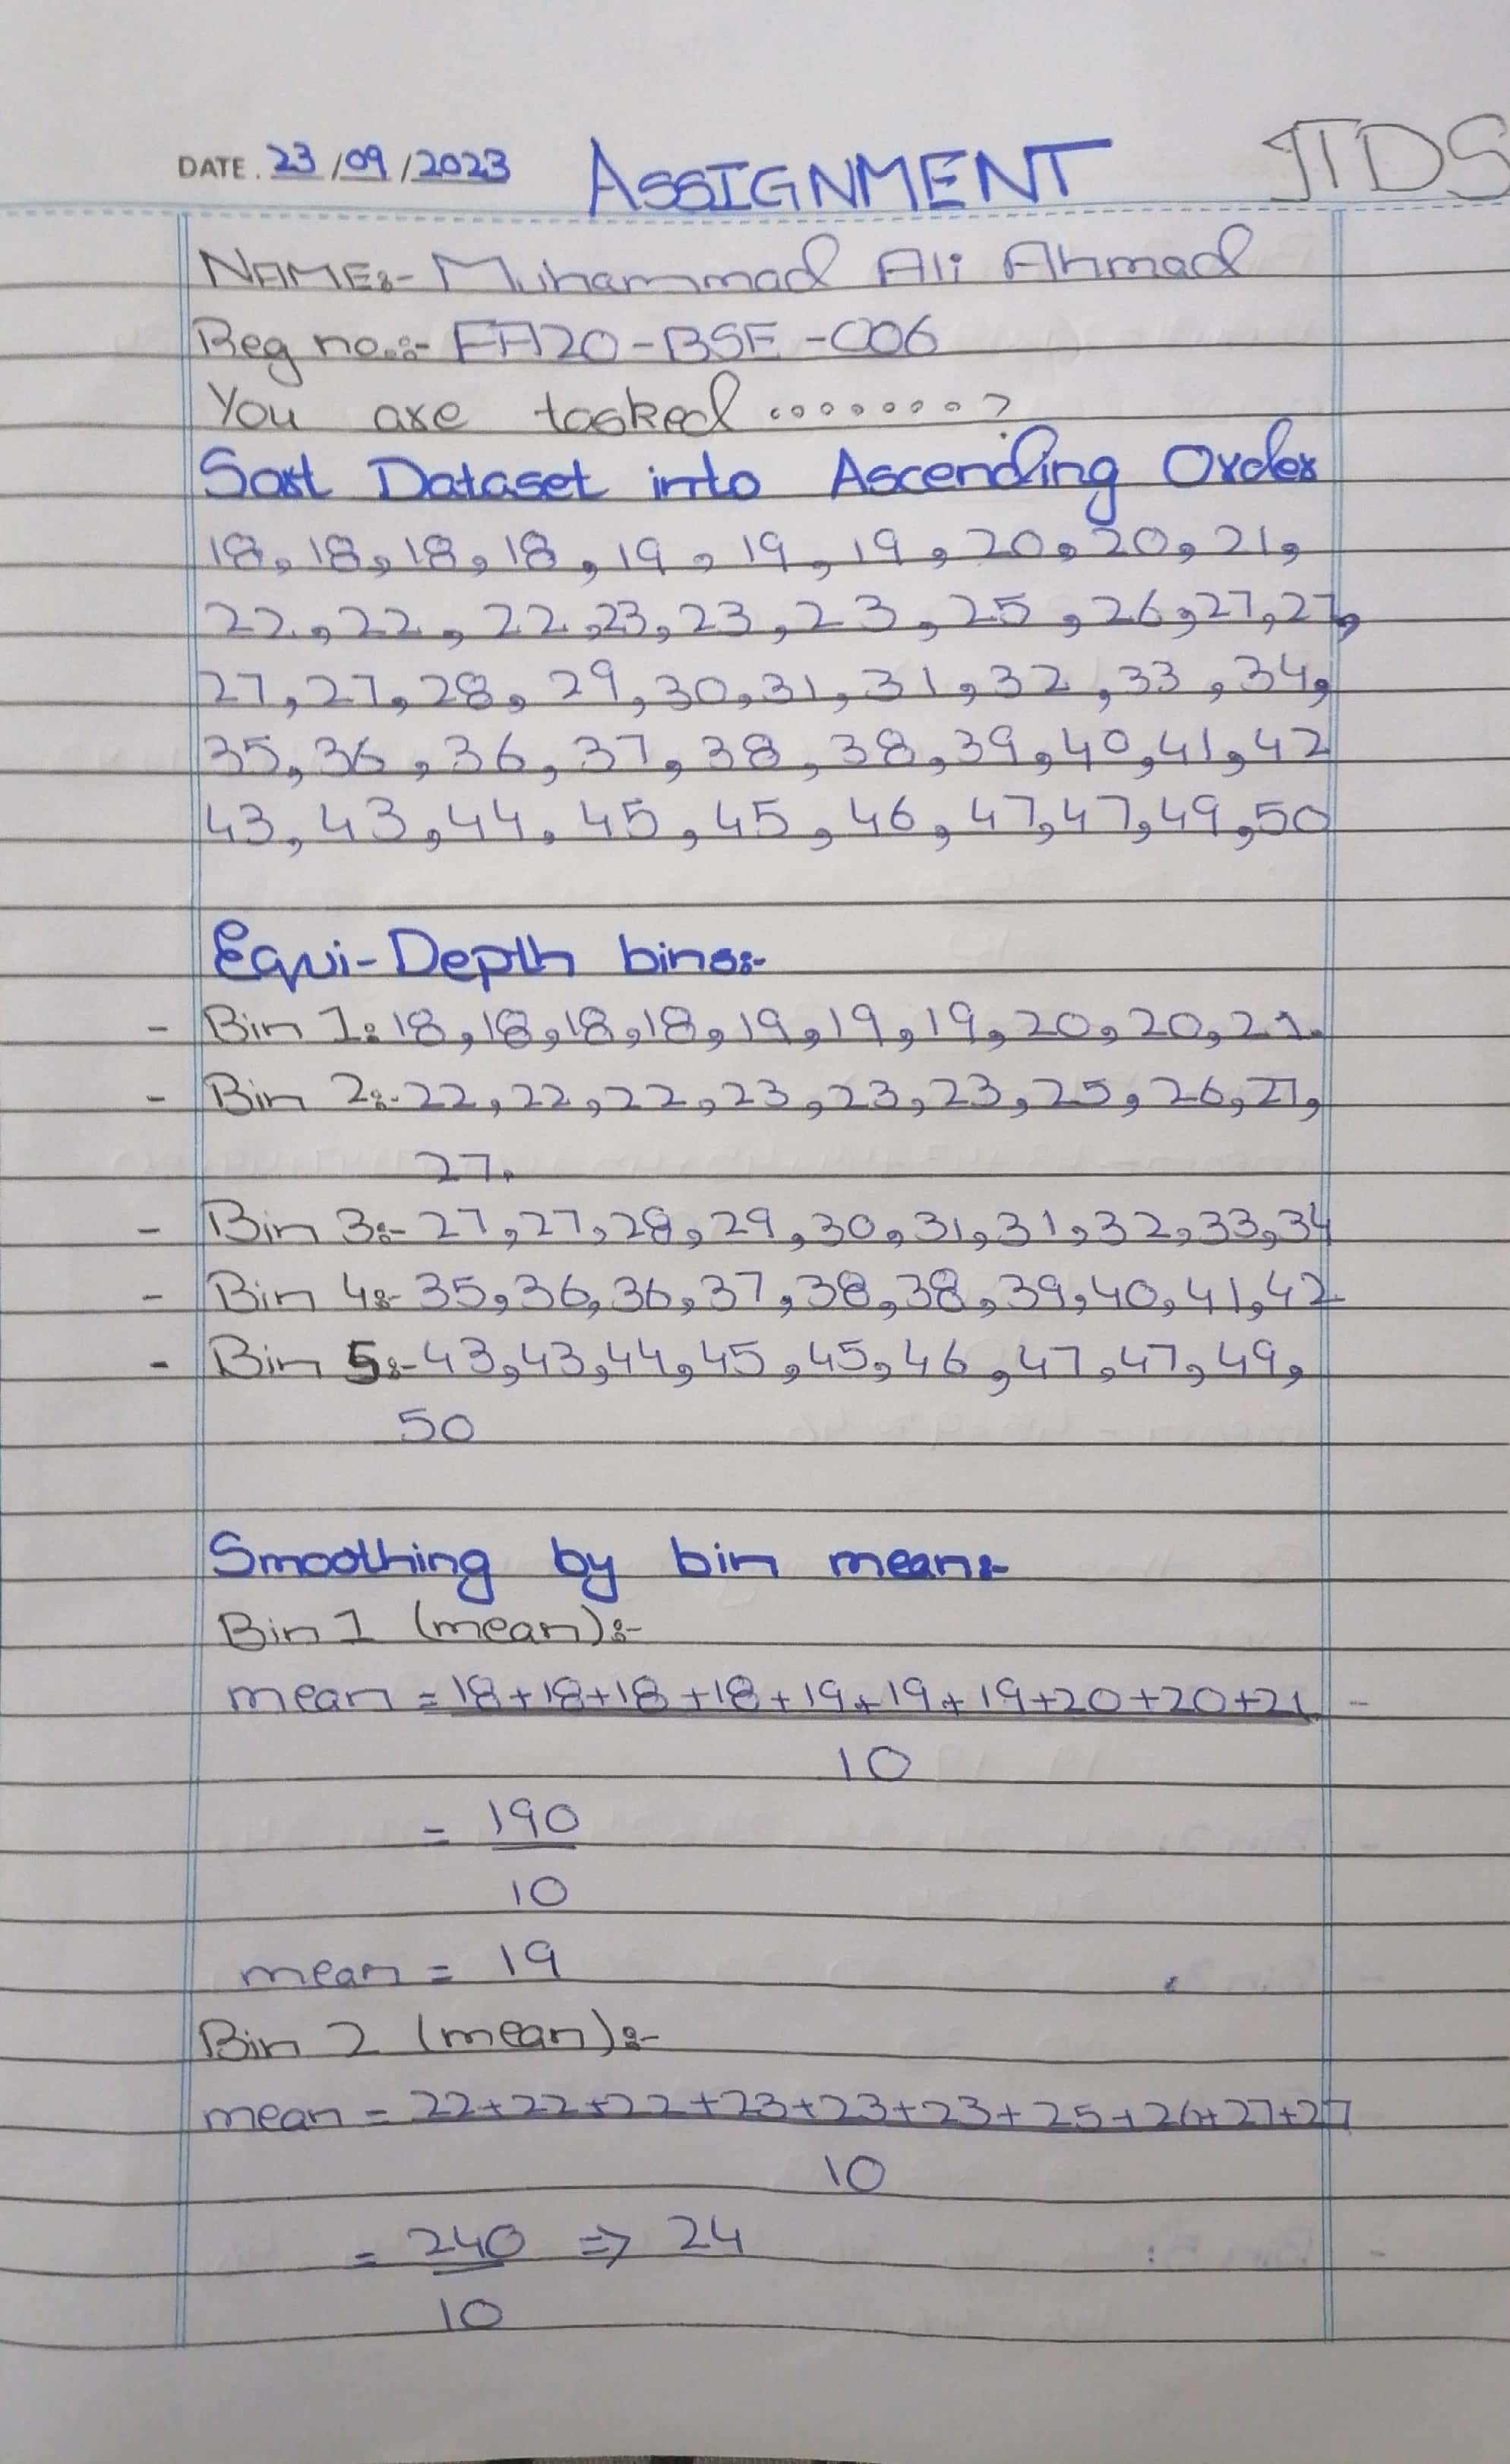 DATE. 23/09/2023 ASSIGNMENT ITDS
NAME:- Muhammad Ali Ahmad
Reg no.:- FA20-BSE-006
You are tasked ........?
Sort Dataset into Ascending Order
18, 18, 18, 18, 19, 19, 19, 20, 20, 21,
22, 22, 22, 23, 23, 23, 25, 26, 27, 27,
27, 27, 28, 29, 30, 31, 31, 32, 33, 34,
35, 36, 36, 37, 38, 38, 39, 40, 41, 42
43, 43, 44, 45, 45, 46, 47, 47, 49, 50
Equi-Depth bins:-
- Bin 1: 18, 18, 18, 18, 19, 19, 19, 20, 20, 21.
- Bin 2:- 22, 22, 22, 23, 23, 23, 25, 26, 27,
27.
- Bin 3:- 27, 27, 28, 29, 30, 31, 31, 32, 33, 34
- Bin 4:- 35, 36, 36, 37, 38, 38, 39, 40, 41, 42
- Bin 5:- 43, 43, 44, 45, 45, 46, 47, 47, 49,
50
Smoothing by bin mean:-
Bin 1 (mean):-
mean = 18+18+18+18+19+19+19+20+20+21
10
= 190
10
mean = 19
Bin 2 (mean):-
mean = 22+22+22+23+23+23+25+26+27+27
10
= 240 => 24
10